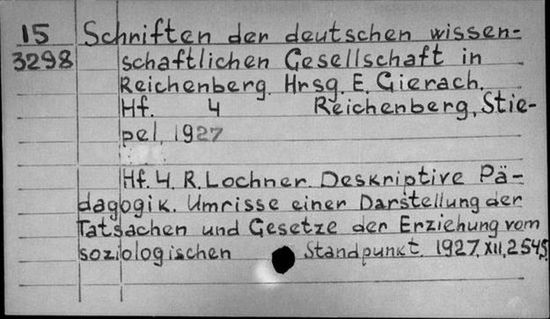 15 Schriften der deutschen wissen-
3298 schaftlichen Gesellschaft in
Reichenberg. Hrsg. E. Gierach.
Hf. 4 Reichenberg, Stie-
pel, 1927
Hf. 4. R. Lochner. Deskriptive Pä-
dagogik. Umrisse einer Darstellung der
Tatsachen und Gesetze der Erziehung vom
soziologischen Standpunkt. 1927. XII, 254S.